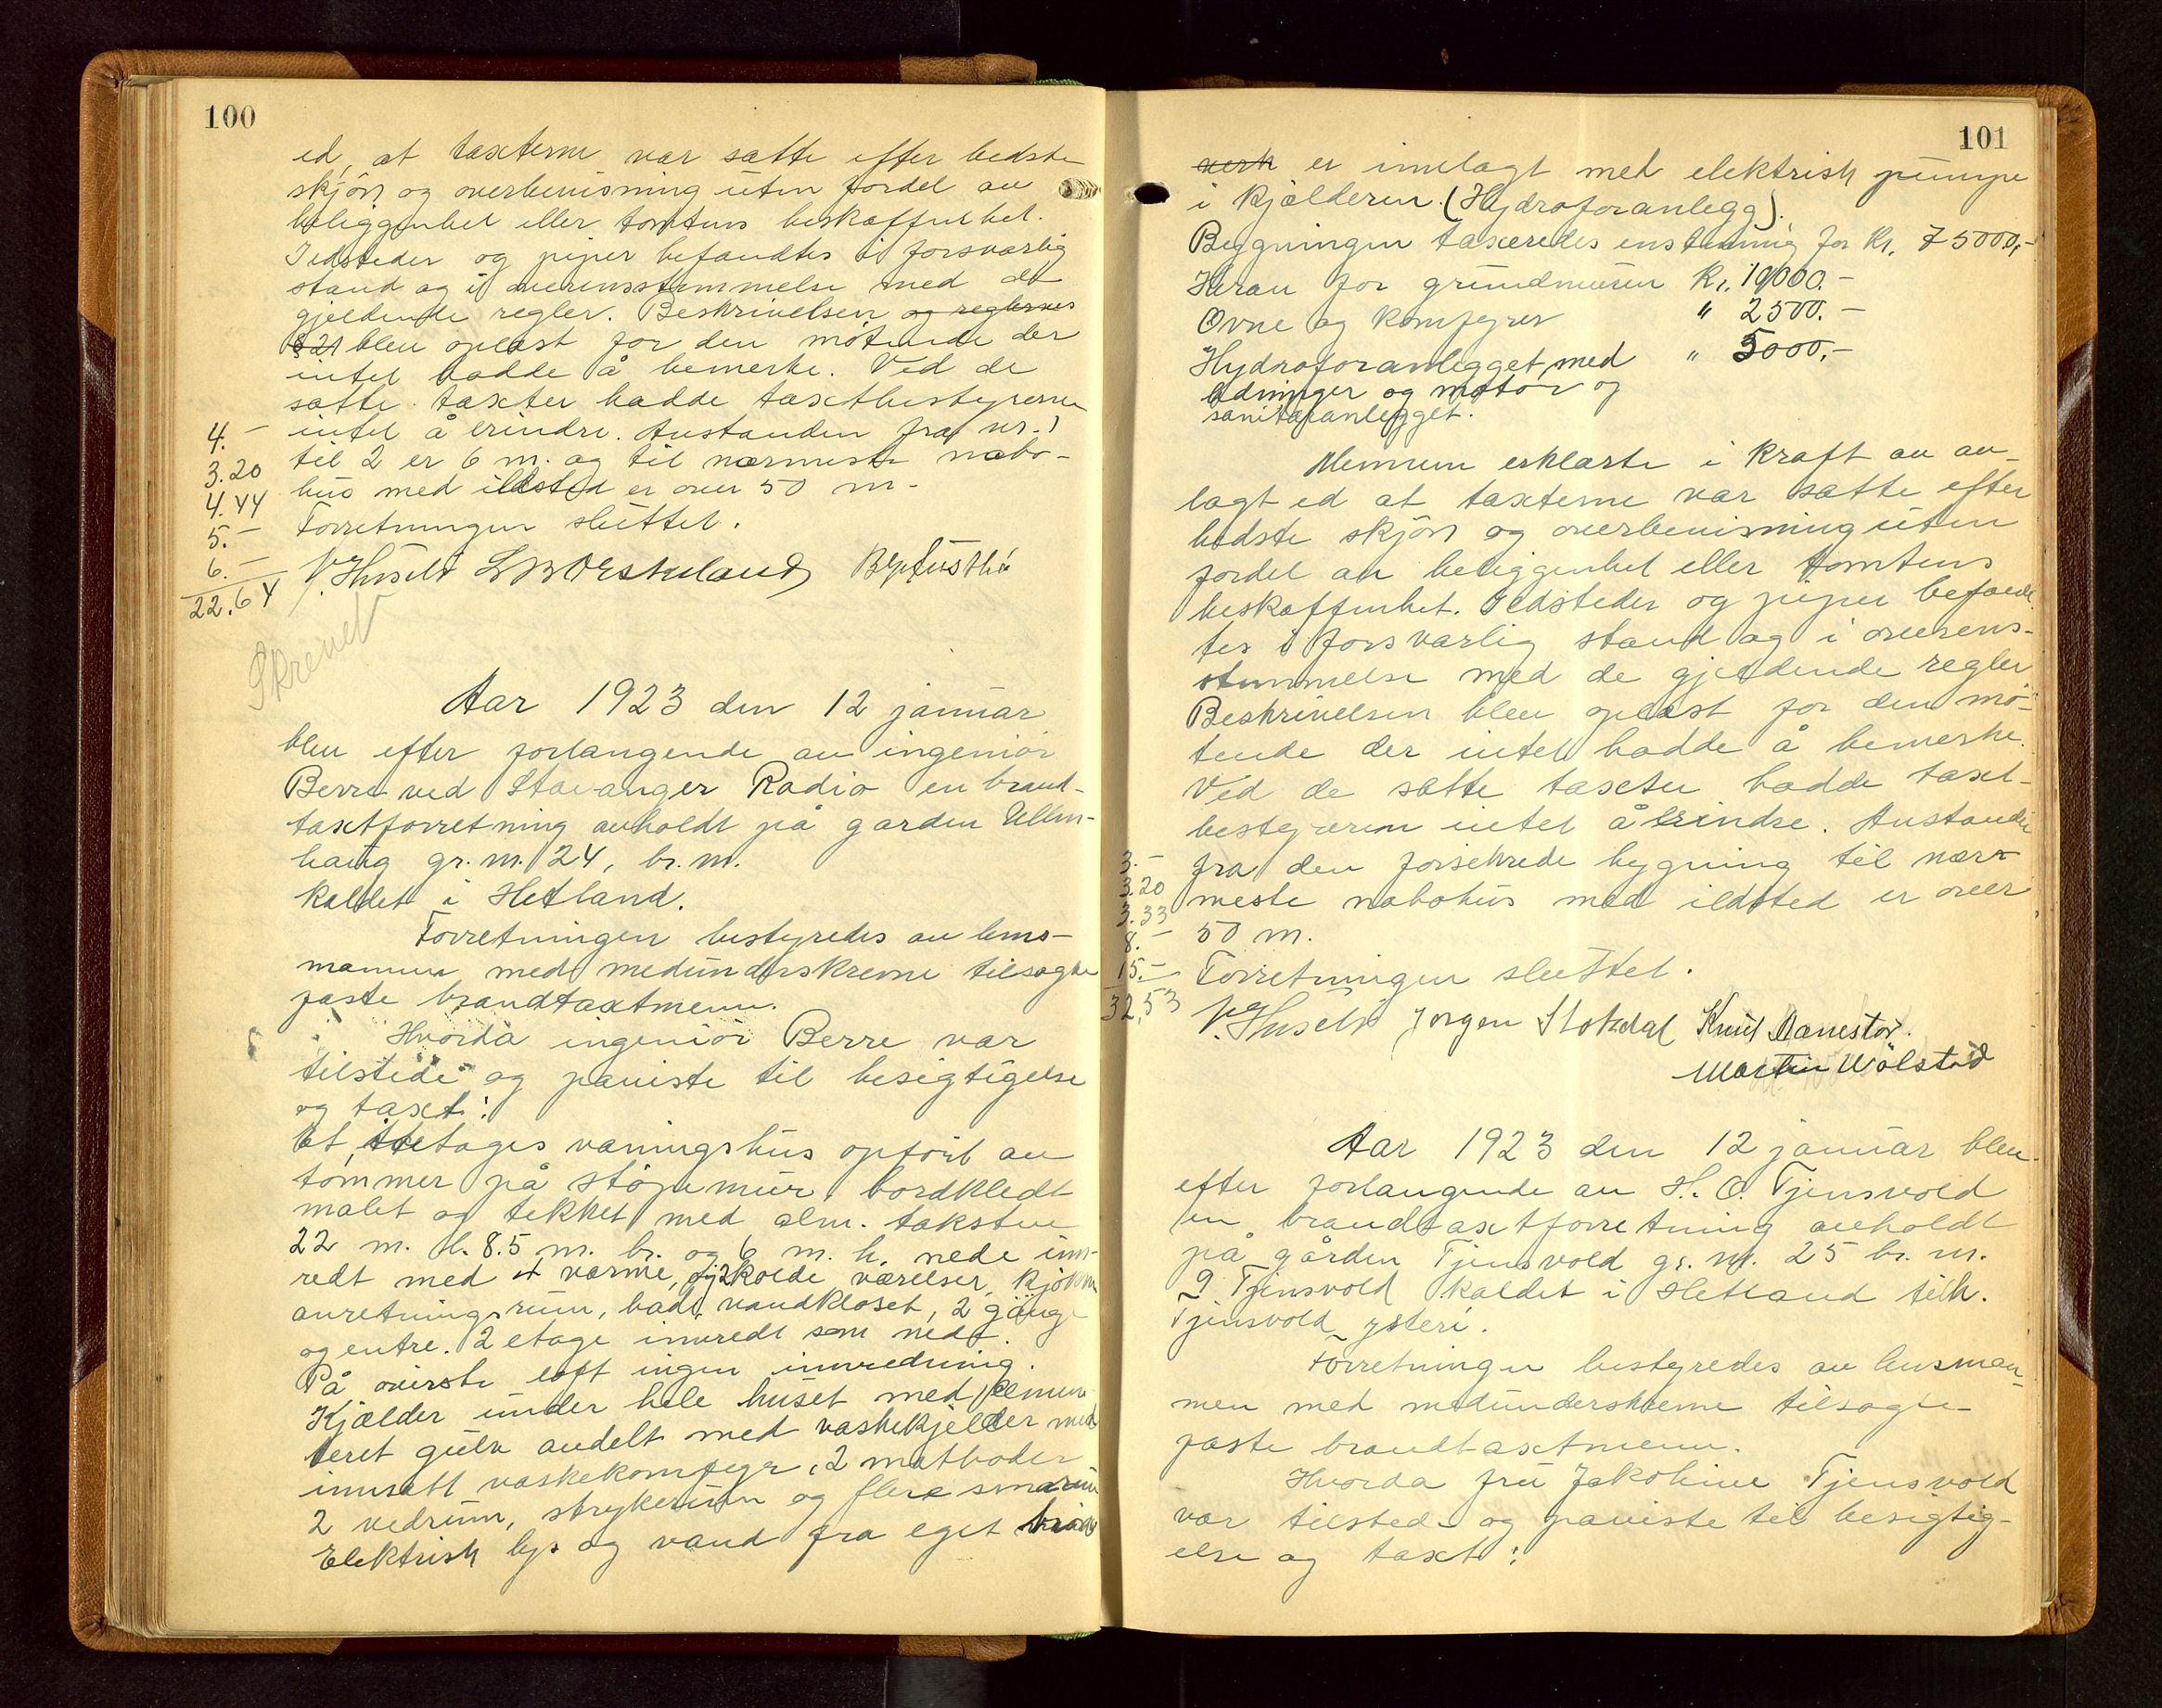 100
ed, at taxterne var satte efter bedste
skjön og overbevisning uten fordel av
beliggenhet eller tomtens beskaffenhet.
Ildsteder og piper befandtes i forsvarlig
stand og i overensstemmelse med de
gjeldende regler. Beskrivelsen og reglernes
§ 21 blev oplæst for den mötende der
intet hadde å bemerke. Ved de
satte taxter hadde taxtbestyreren
intet å erindre. Avstanden fra nr. 1
til 2 er 6 m. og til nærmeste nabo-
hus med ildsted er over 50 m.
Forretningen sluttet.
4. -
3.20
4.44
5. -
6. -
22.64
Skrevet
Aar 1923 den 12 januar
blev efter forlangende av ingeniör
Berre ved Stavanger Radio en brand-
taxtforretning avholdt på garden Ullen-
haug gr. nr. 24, br. nr.
kaldet i Hetland.
Forretningen bestyredes av lens-
mannen med medunderskrevne tilsagte
faste brandtaxtmenn.
Hvorda ingeniör Berre var
tilstede og paviste til besigtigelse
og taxt:
Et, toetages vaningshus opfört av
tömmer på stöpemur, bordkledt
malet og tekket med alm. taksten
22 m. l. 8.5 m. br. og 6 m. h. nede inn-
redt med 4 varme, og 2 kolde værelser, kjökken
anretningsrum, bad, vandkloset, 2 gange
og entre. 2 etage innredt som nede.
På överste loft ingen innredning.
Kjælder under hele huset med semen-
teret gulv avdelt med vaskekjelder med
innsatt vaskekomfyr, 2 matboder
2 vedrum, strykerum og flere smarum
Elektrisk lys og vand fra eget brönd
101
verk er innlagt med elektrisk pumpe
i kjælderen. (Hydroforanlegg).
Bygningen taxeredes enstemmig for Kr. 75000,-
Herav for grundmuren Kr. 10000.-
Ovne og komfyrer " 2500.-
Hydroforanlegget med " 5000,-
ledninger og motor og
sanitæranlegget.
Mennene erklærte i kraft av av-
lagt ed at taxterne var satte efter
bedste skjön og overbevisning uten
fordel av beliggenhet eller tomtens
beskaffenhet. Ildsteder og piper befand-
tes i forsvarlig stand og i overens-
stemmelse med de gjeldende regler
Beskrivelsen blev oplæst for den mö-
tende der intet hadde å bemerke.
Ved de satte taxter hadde taxt-
bestyreren intet å erindre. Avstanden
fra den forsikrede bygning til nær-
meste nabohus med ildsted er over
50 m.
Forretningen sluttet.
3.-
3.20
3.33
8.-
15.-
32,53
Jorgen Stokdal Knut
Martin Wölstad
Aar 1923 den 12 januar blev
efter forlangende av H. O. Tjensvold
en brandtaxtforretning avholdt
på gården Tjensvold gr. nr. 25 br. nr.
9 Tjensvold kaldet i Hetland tilh.
Tjensvold ysteri.
Forretningen bestyredes av lensman-
nen med medunderskrevne tilsagte
faste brandtaxtmenn.
Hvorda fru Jakobine Tjensvold
var tilstede og paviste til besigtig-
else og taxt: